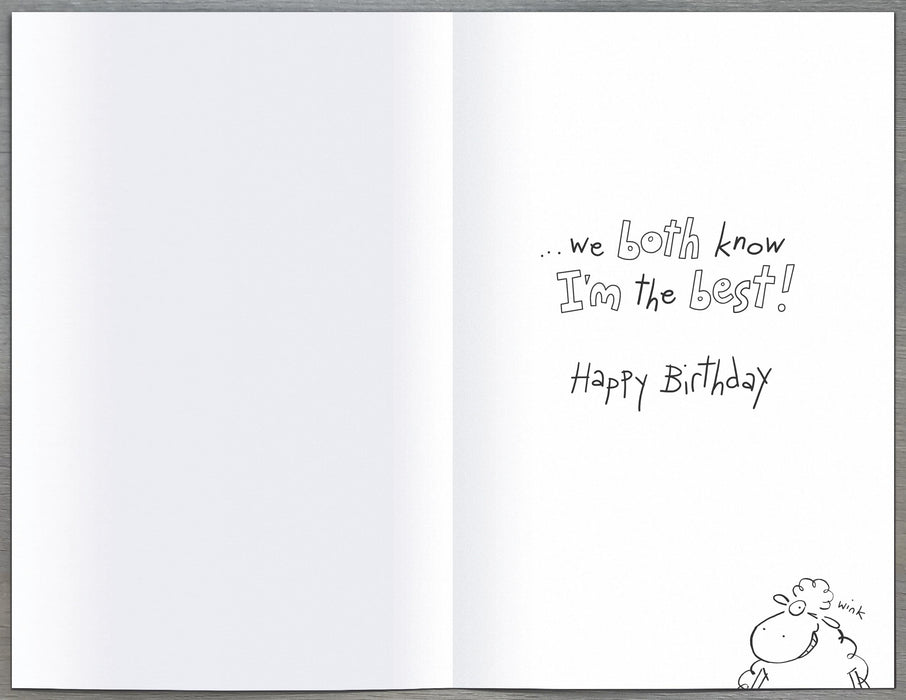 ...we both know
I'm the best!
Happy Birthday
wink